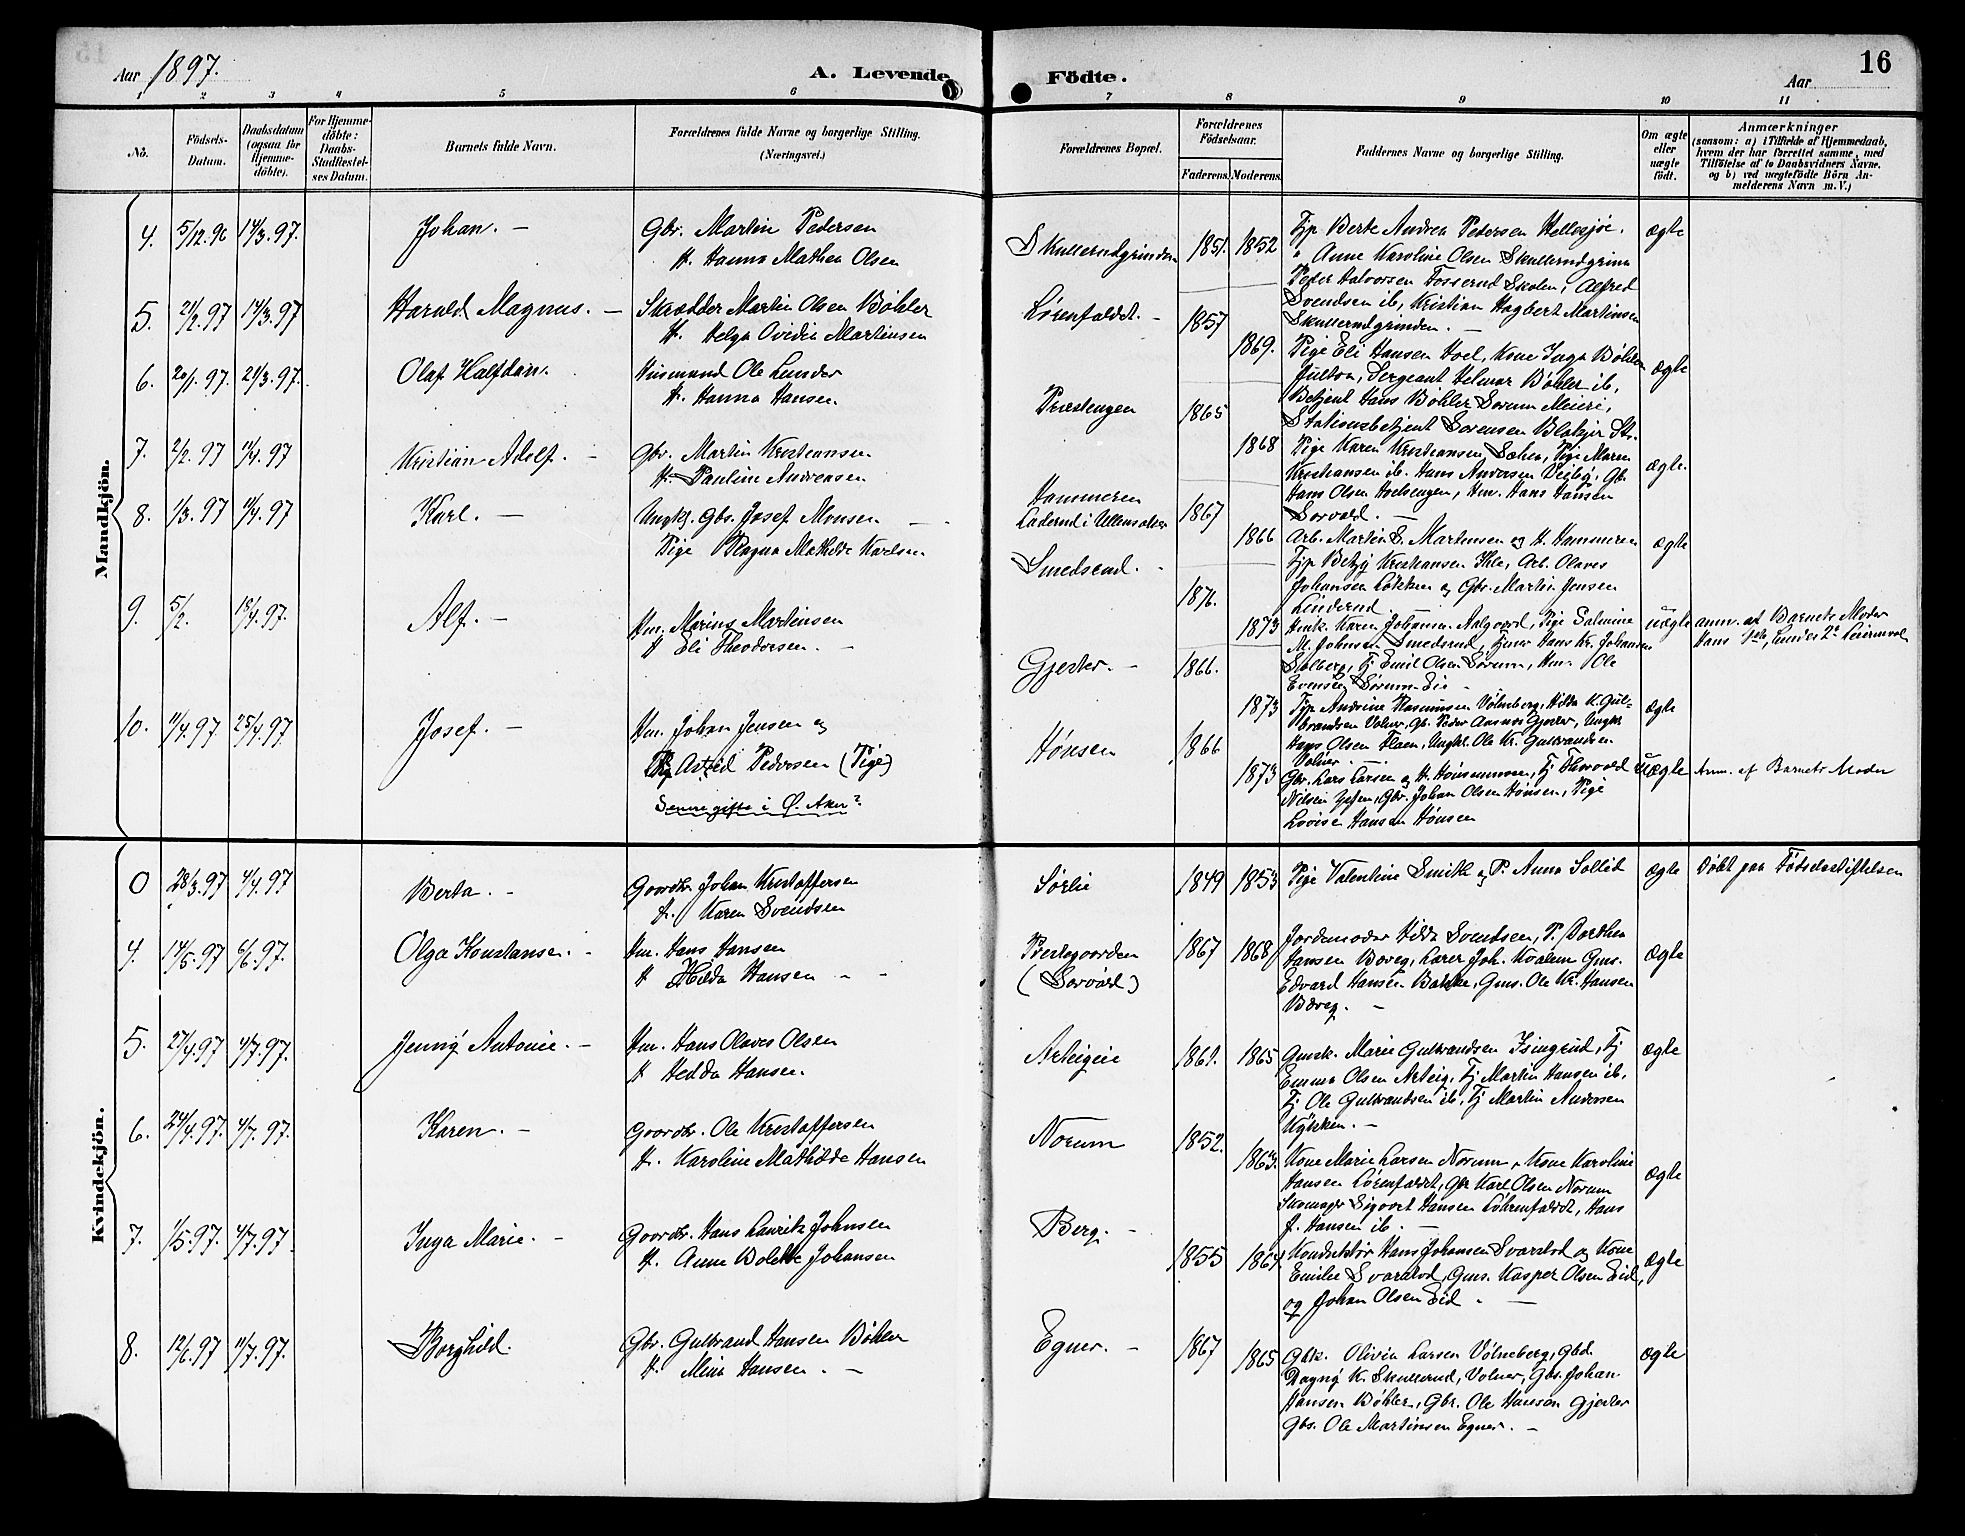 Aar 1897.
A. Levende Födte.
Aar
16
1 2 3 4 5 6 7 8 9 10 11
No.
Födsels-Datum.
Daabsdatum (ogsaa for Hjemme-döbte).
For Hjemme-döbte: Daabs-Stadfæstel-ses Datum.
Barnets fulde Navn.
Forældrenes fulde Navne og borgerlige Stilling. (Næringsvei.)
Forældrenes Bopæl.
Forældrenes Födselsaar.
Faderens. Moderens.
Faddernes Navne og borgerlige Stilling.
Om ægte eller uægte födt.
Anmærkninger
(saasom: a) i Tilfælde af Hjemmedaab, hvem der har forrettet samme, med Tilföielse af to Daabsvidners Navne, og b) ved uægtefödte Börn An-melderens Navn m. V.)
Mandkjön.
4. 5/12.96 14/3.97. Johan. – Gbr. Martin Pedersen
H. Hanna Mathea Olsen
Skullerudgrinden 1851. 1852
Tjp Berte Andrea Pedersen Hellesjøe.
" Anne Karoline Olsen Skullerudgrinn
Peder Halvorsen Fosserud Skolen, Alfred
Svendsen ib, Kristian Hagbert Martinsen
Skullerudgrinden. –
ægte
5. 21/2.97 14/3.97 Harald Magnus. – Skrædder Martin Olsen Bøhler
H. Helga Ovidie Martinsen
Lørenfaldet. – 1857 1869.
Pige Eli Hansen Hoel, Kone Inga Bøhler
Sergeant Helmer Bøhler ib,
Betjent Hans Bøhler Sørum Meieri,
Stationsbetjent Sørensen Blakjer St.
ægte
6. 20/1.97. 21/3.97. Olaf Halfdan. Husmand Ole Lunder
H. Hanna Hansen.
Præstengen 1865 1868
Pige Karen Kristiansen Pige Maren
Kristiansen ib. Hans Andersen Veiby, Gb.
Hans Olsen Hoelsengen, Hm. Hans Hansen
Sorvald. –
ægte.
7. 2/2.97 11/4.97 Kristian Adolf. – Gbr. Martin Kristiansen
H. Pauline Andreasen
Hammeren 1867 1866
Arb. Martin S. Martinsen og H. Hammeren
Tjp Betzy Kristiansen Ihle, Arb. Olaves
Johansen Løkken og Gbr. Martin Jensen
Linderud
ægte
8. 1/3.97 11/4.97 Karl. – Ungk. Gbs. Josef Monsen –
Pige Ragna Mathilde Karlsen
Laderud i Ullensaker
Smedsrud. – 1876. 1873
Hmk. Karen Johansen Aalgaard, Pige Salmine
M. Johnsen Smedsrud, Hans Kr. Johansen
Solberg, Tj Emil Olsen Sørum, Hm. Ole
Evensen Sørum-Eie –
uægte anm. af Barnets Moder
9. 5/2. 18/4.97. Alf. – Hm. Marius Martinsen
H Eli Theodorsen. –
Gjester. – 1866. 1873
Tjp Andrine Rasmussen Vølneberg, Hilda K. Gul-
brandsen Volner, Gb. Peder Gjester, Ungk
Hans Olsen Flaen, Ungkl. Ole Kr. Gulbrandsen
Volner. –
ægte
10. 11/4.97 25/4.97 Josef. – Hm. Johan Jensen og
Astrid Pedersen (Pige)
Senere gifte i Ø. Aker?
Hønsen 1866 1873
Gbr. Lars Larsen og H. Hønsummoen, Tj. Thorvald
Nilsen Gbr. Johan Olsen Hønsen, Pige
Lovise Hansen Hønsen
uægte Anm. af Barnets Moder
Kvindekjön.
0 28/3.97 4/4.97 Berta. – Gaardbr. Johan Kristoffersen
H. Karen Svendsen
Sørlie 1849 1853
Pige Valentine Smith og P. Anna Sollid
ægte Døbt paa Fødselsstiftelsen
4. 14/5.97 6/6.97. Olga Konstanse. – Hm. Hans Hansen
H Hilda Hansen – –
Prestegaarden
(Sorvald)
1867 1868
Jordemoder Hilda Svendsen, P. Dorthea
Hansen Børeg, Lærer Joh. Kvalem Gms.
Edvard Hansen Bakke, Gms. Ole Kr. Hansen
Børeg. –
ægte
5. 27/4.97 4/7.97. Jenny Antonie. – Hm. Hans Olaves Olsen
H Hedda Hansen.
Arteigeie 1861. 1865
Gmsk. Marie Gulbrandsen Isingrud, Tj
Emma Olsen Arteig, Tj Martin Hansen ib.
Tj. Ole Gulbrandsen ib, Tj Martin Andersen
ægte
6. 24/4.97. 4/7.97. Karen. – Gaardbr. Ole Kristoffersen
H. Karoline Mathilde Hansen
Norum 1852. 1863.
Kone Marie Larsen Norum, Kone Karoline
Hansen Lørenfaldet, Gbr Karl Olsen Norum
Skomager Sigvart Hansen Løhrenfaldet, Hans
J. Hansen ib. –
ægte
7. 1/5.97. 4/7.97 Inga Marie. – Gaardbr. Hans Laurits Johnsen
H. Anne Bolette Johansen
Berg. – 1855 1864.
Konduktør Hans Johansen Svarstad og Kone
Emilie Svarstad, Gms. Kasper Olsen Eid,
og Johan Olsen Eid. –
ægte
8. 12/6.97 11/7.97. Borghild. Gbr. Gulbrand Hansen Bøhler
H. Mina Hansen. –
Egner. – 1867 1865
Gbk. Olivia Larsen Vølneberg, Gbd.
Dagny K. Skullerud, Volner, Gbs. Johan
Hansen Bøhler, Gbr. Ole Hansen Gjester
Gbs. Ole Martinsen Egner. –
ægte